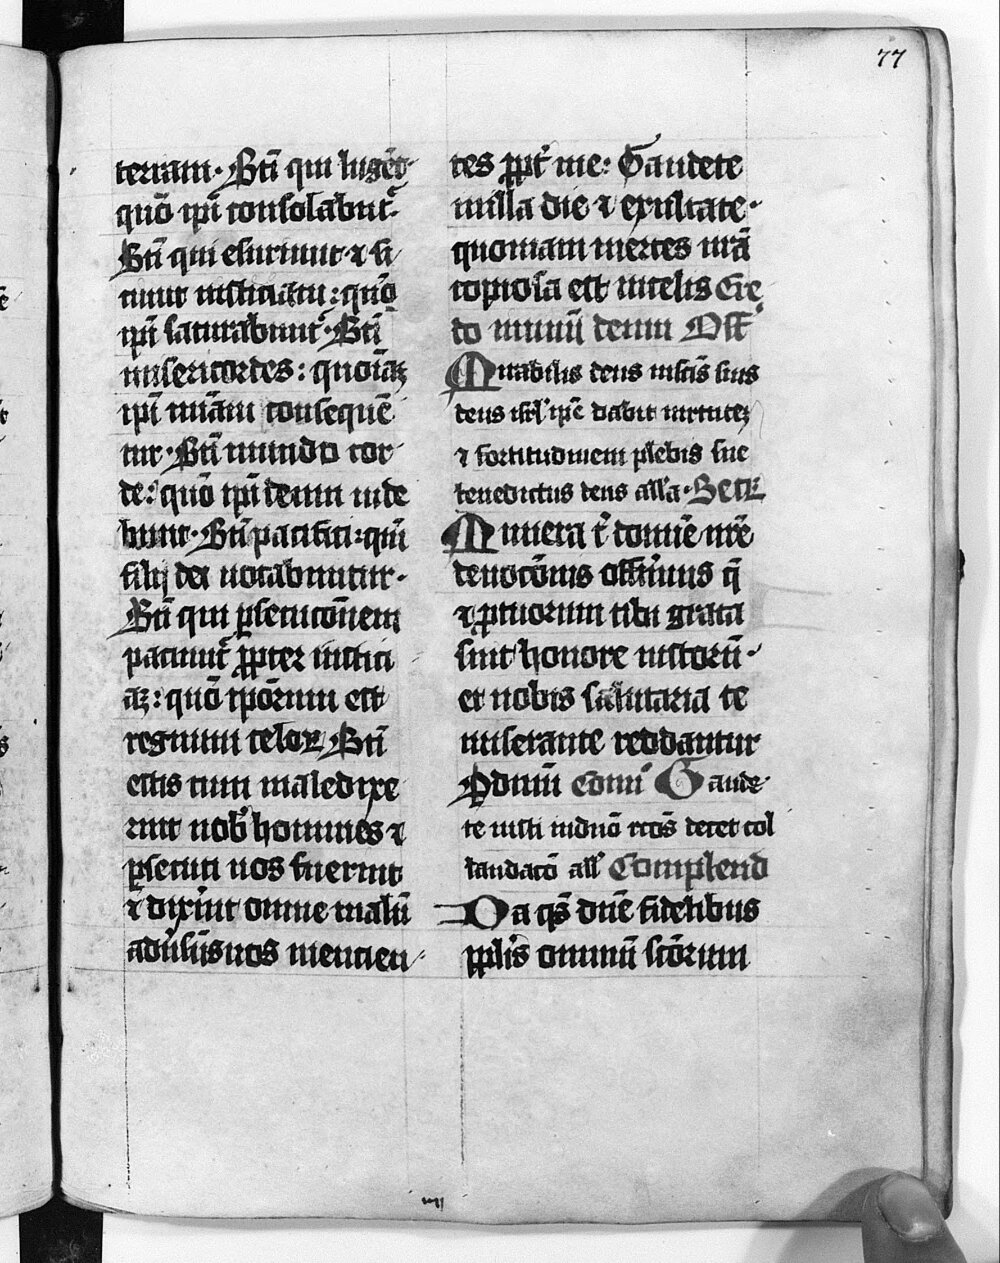 77
terram· Bti qui lugēt
quō ipi consolabūt̄·
Bti qui esuriunt ⁊ si
ciunt iusticiam: quō
ipi saturabunt̄· Bti
misericordes: quoiaꝫ
ipi miām conseque͞
tur· Bti mundo cor
de: quō ipi deum uide
bunt· Bti pacifici: qm̄
filij dei uocabuntur·
Bti qui ꝑsecucōnem
paciunt̄ ꝓpter iustici
aꝫ: quō ipōrum est
regnum celoꝝ Bti
estis cum maledixe
rint uob̄ homines ⁊
ꝑsecuti uos fuerint
⁊ dixint omne malū
adūsus uos mencien
tes ꝓpt̄ me: Gaudete
in illa die ⁊ exultate·
quoniam merces urā
copiosa est in celis Cre
do in unū deum Off̄
Mirabilis deus in scīs suis
deus isrl̄ ipē dabit uirtuteꝫ
⁊ fortitudinem plebis sue
benedictus deus all̄a· Secrꝫ
Munera t̄ domine nr̄e
deuocōnis offerimus q̄
⁊ ꝓ tuorum tibi grata
sint honore iustorū·
et nobis salutaria te
miserante reddantur
P dnm̄ Com̄ Gaude
te iusti in dnō rcōs decet col
laudacō all̄ Complend
Da qs̄ dnē fidelibus
ppl̄is omniū scōrum
vii